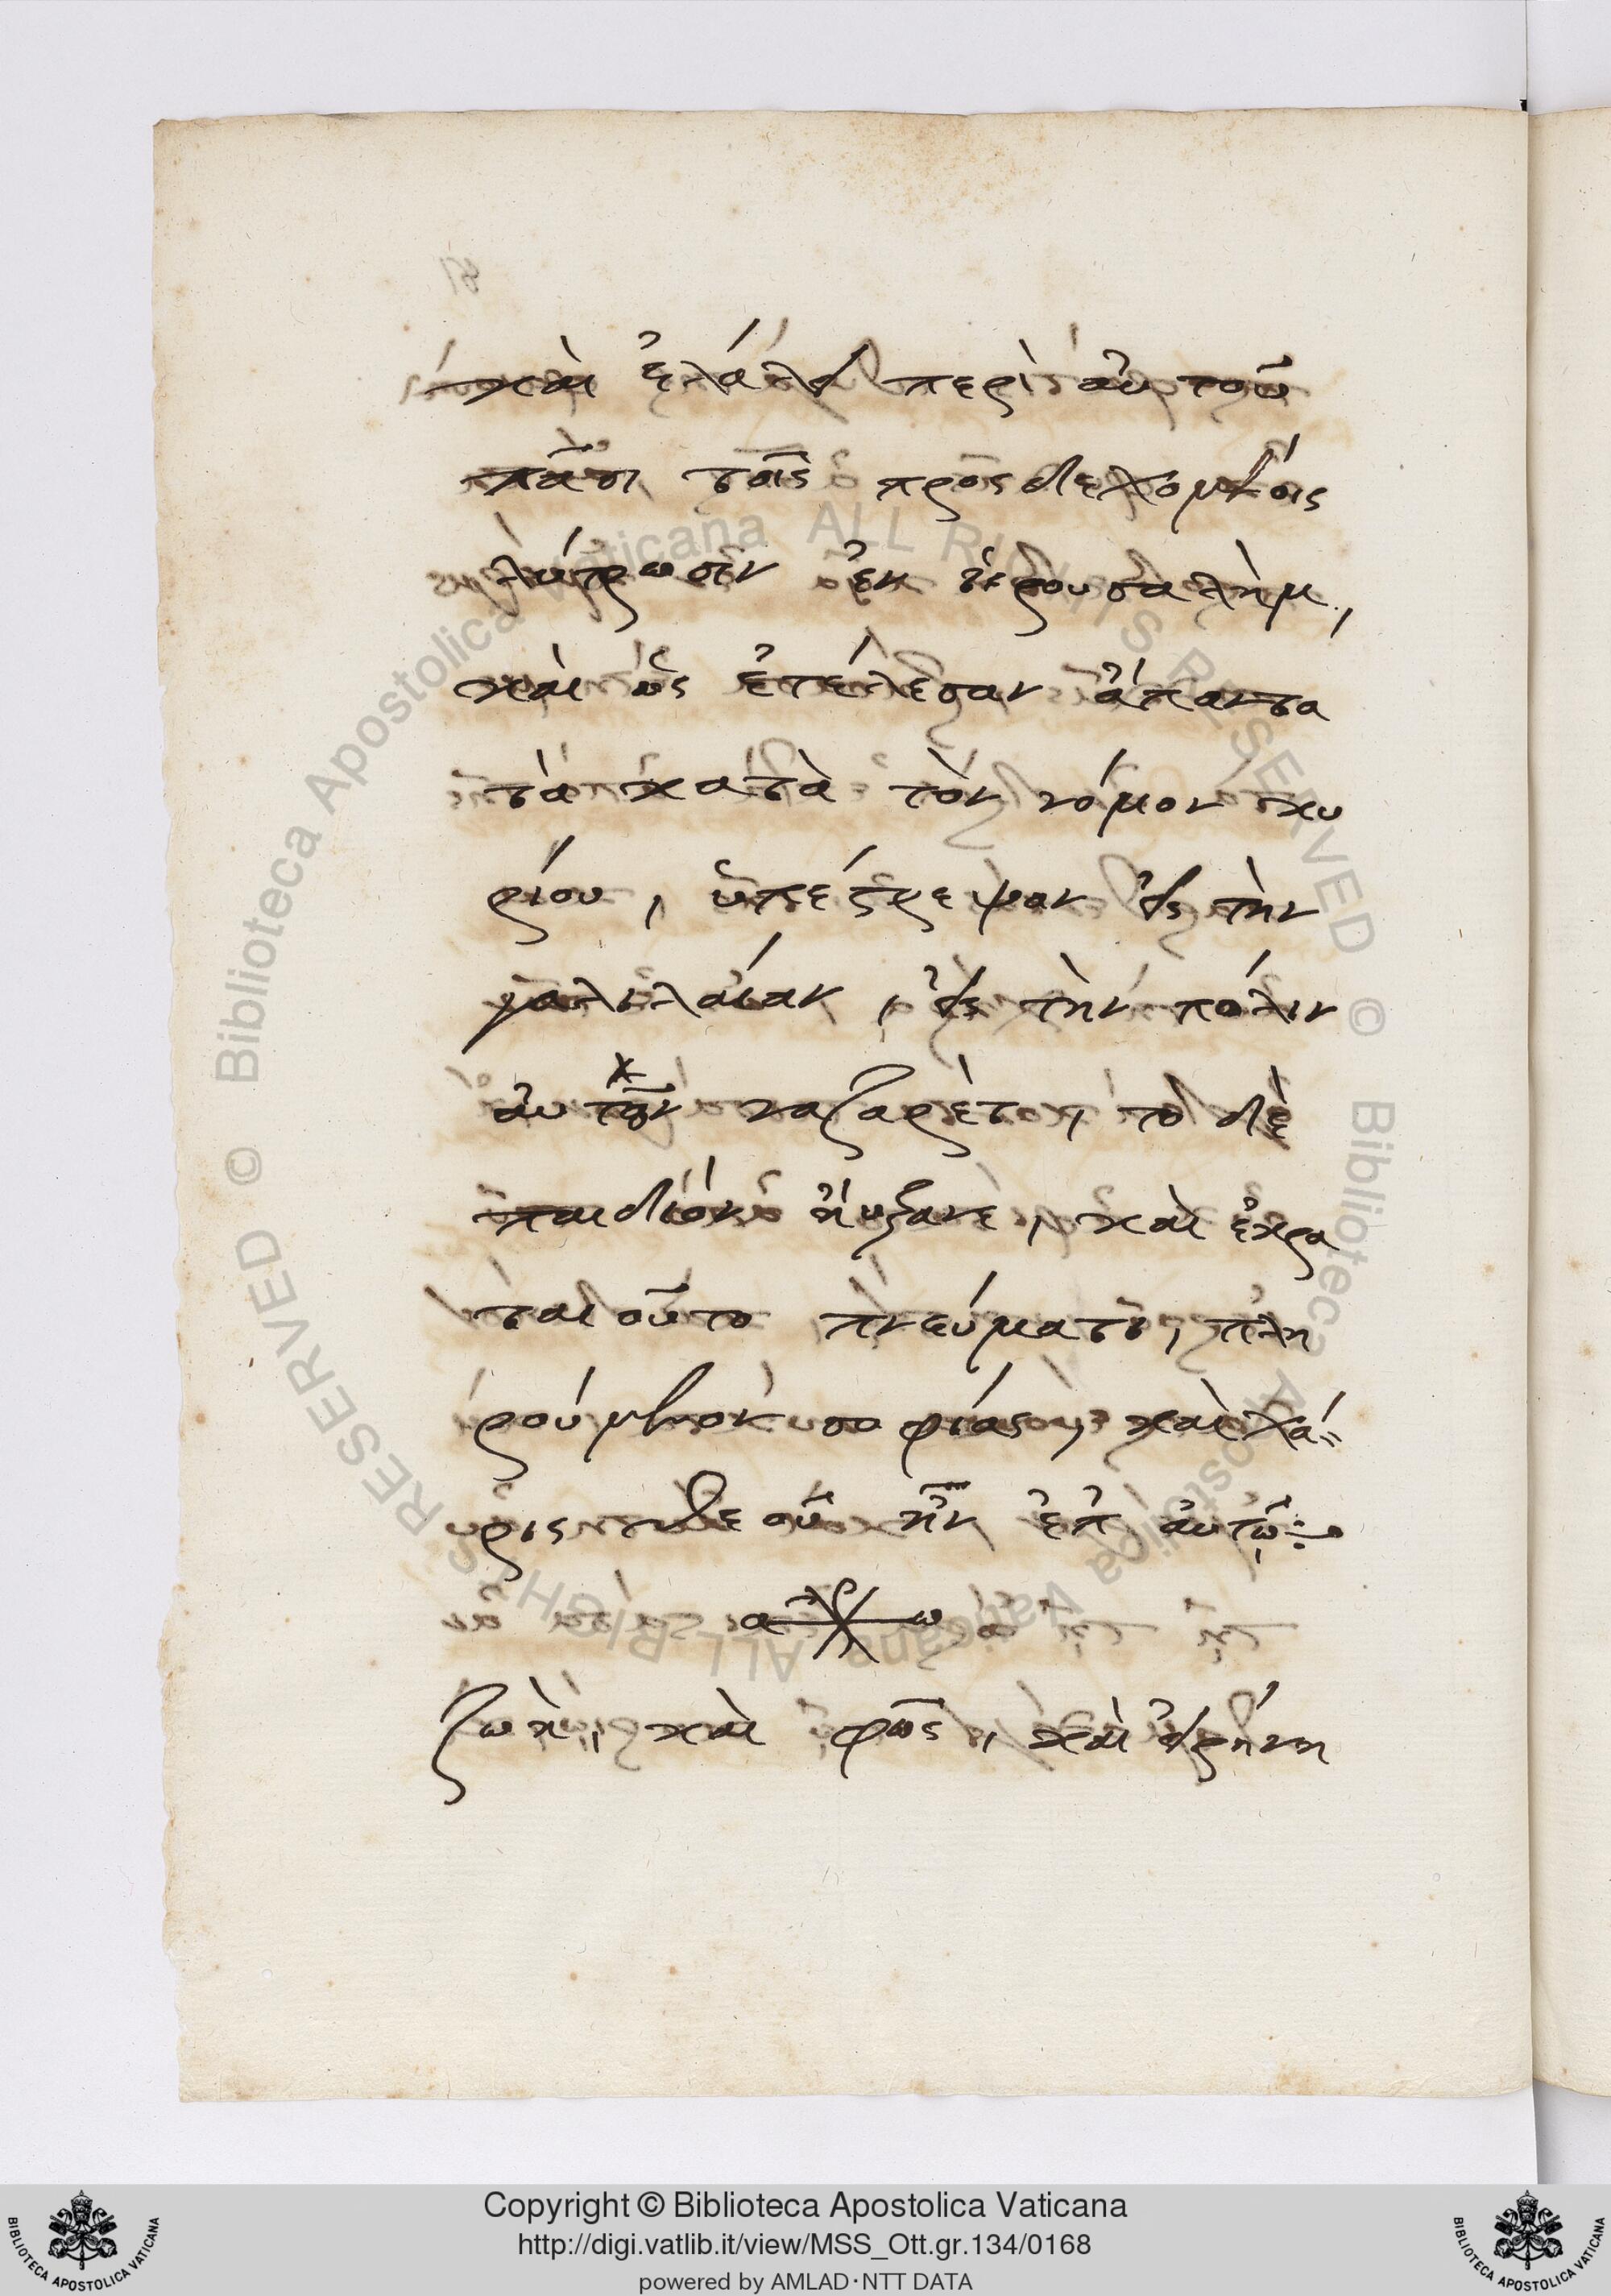 καὶ ἐλάλει περὶ αὐτοῦ
πᾶσι τοῖς προσδεχομένοις
λύτρωσιν ἐν ἱερουσαλὴμ,
καὶ ὡς ἐτέλεσαν ἅπαντα
τὰ κατὰ τὸν νόμον κυ
ρίου, ὑπέστρεψαν εἰς τὴν
γαλιλαίαν, εἰς τὴν πόλιν
αὐτῶν ναζαρὲτ, τὸ δὲ
παιδίον ηὔξανε, καὶ ἐκρα
ταιοῦτο πνεύματι, πλη
ρούμενον σοφίας, καὶ χά
ρις θεοῦ ἦν ἐπ αὐτῷ:
α ☧ ω
ζωὴ, καὶ φῶς, καὶ εἰρήνη
Copyright © Biblioteca Apostolica Vaticana
http://digi.vatlib.it/view/MSS_Ott.gr.134/0168
powered by AMLAD·NTT DATA